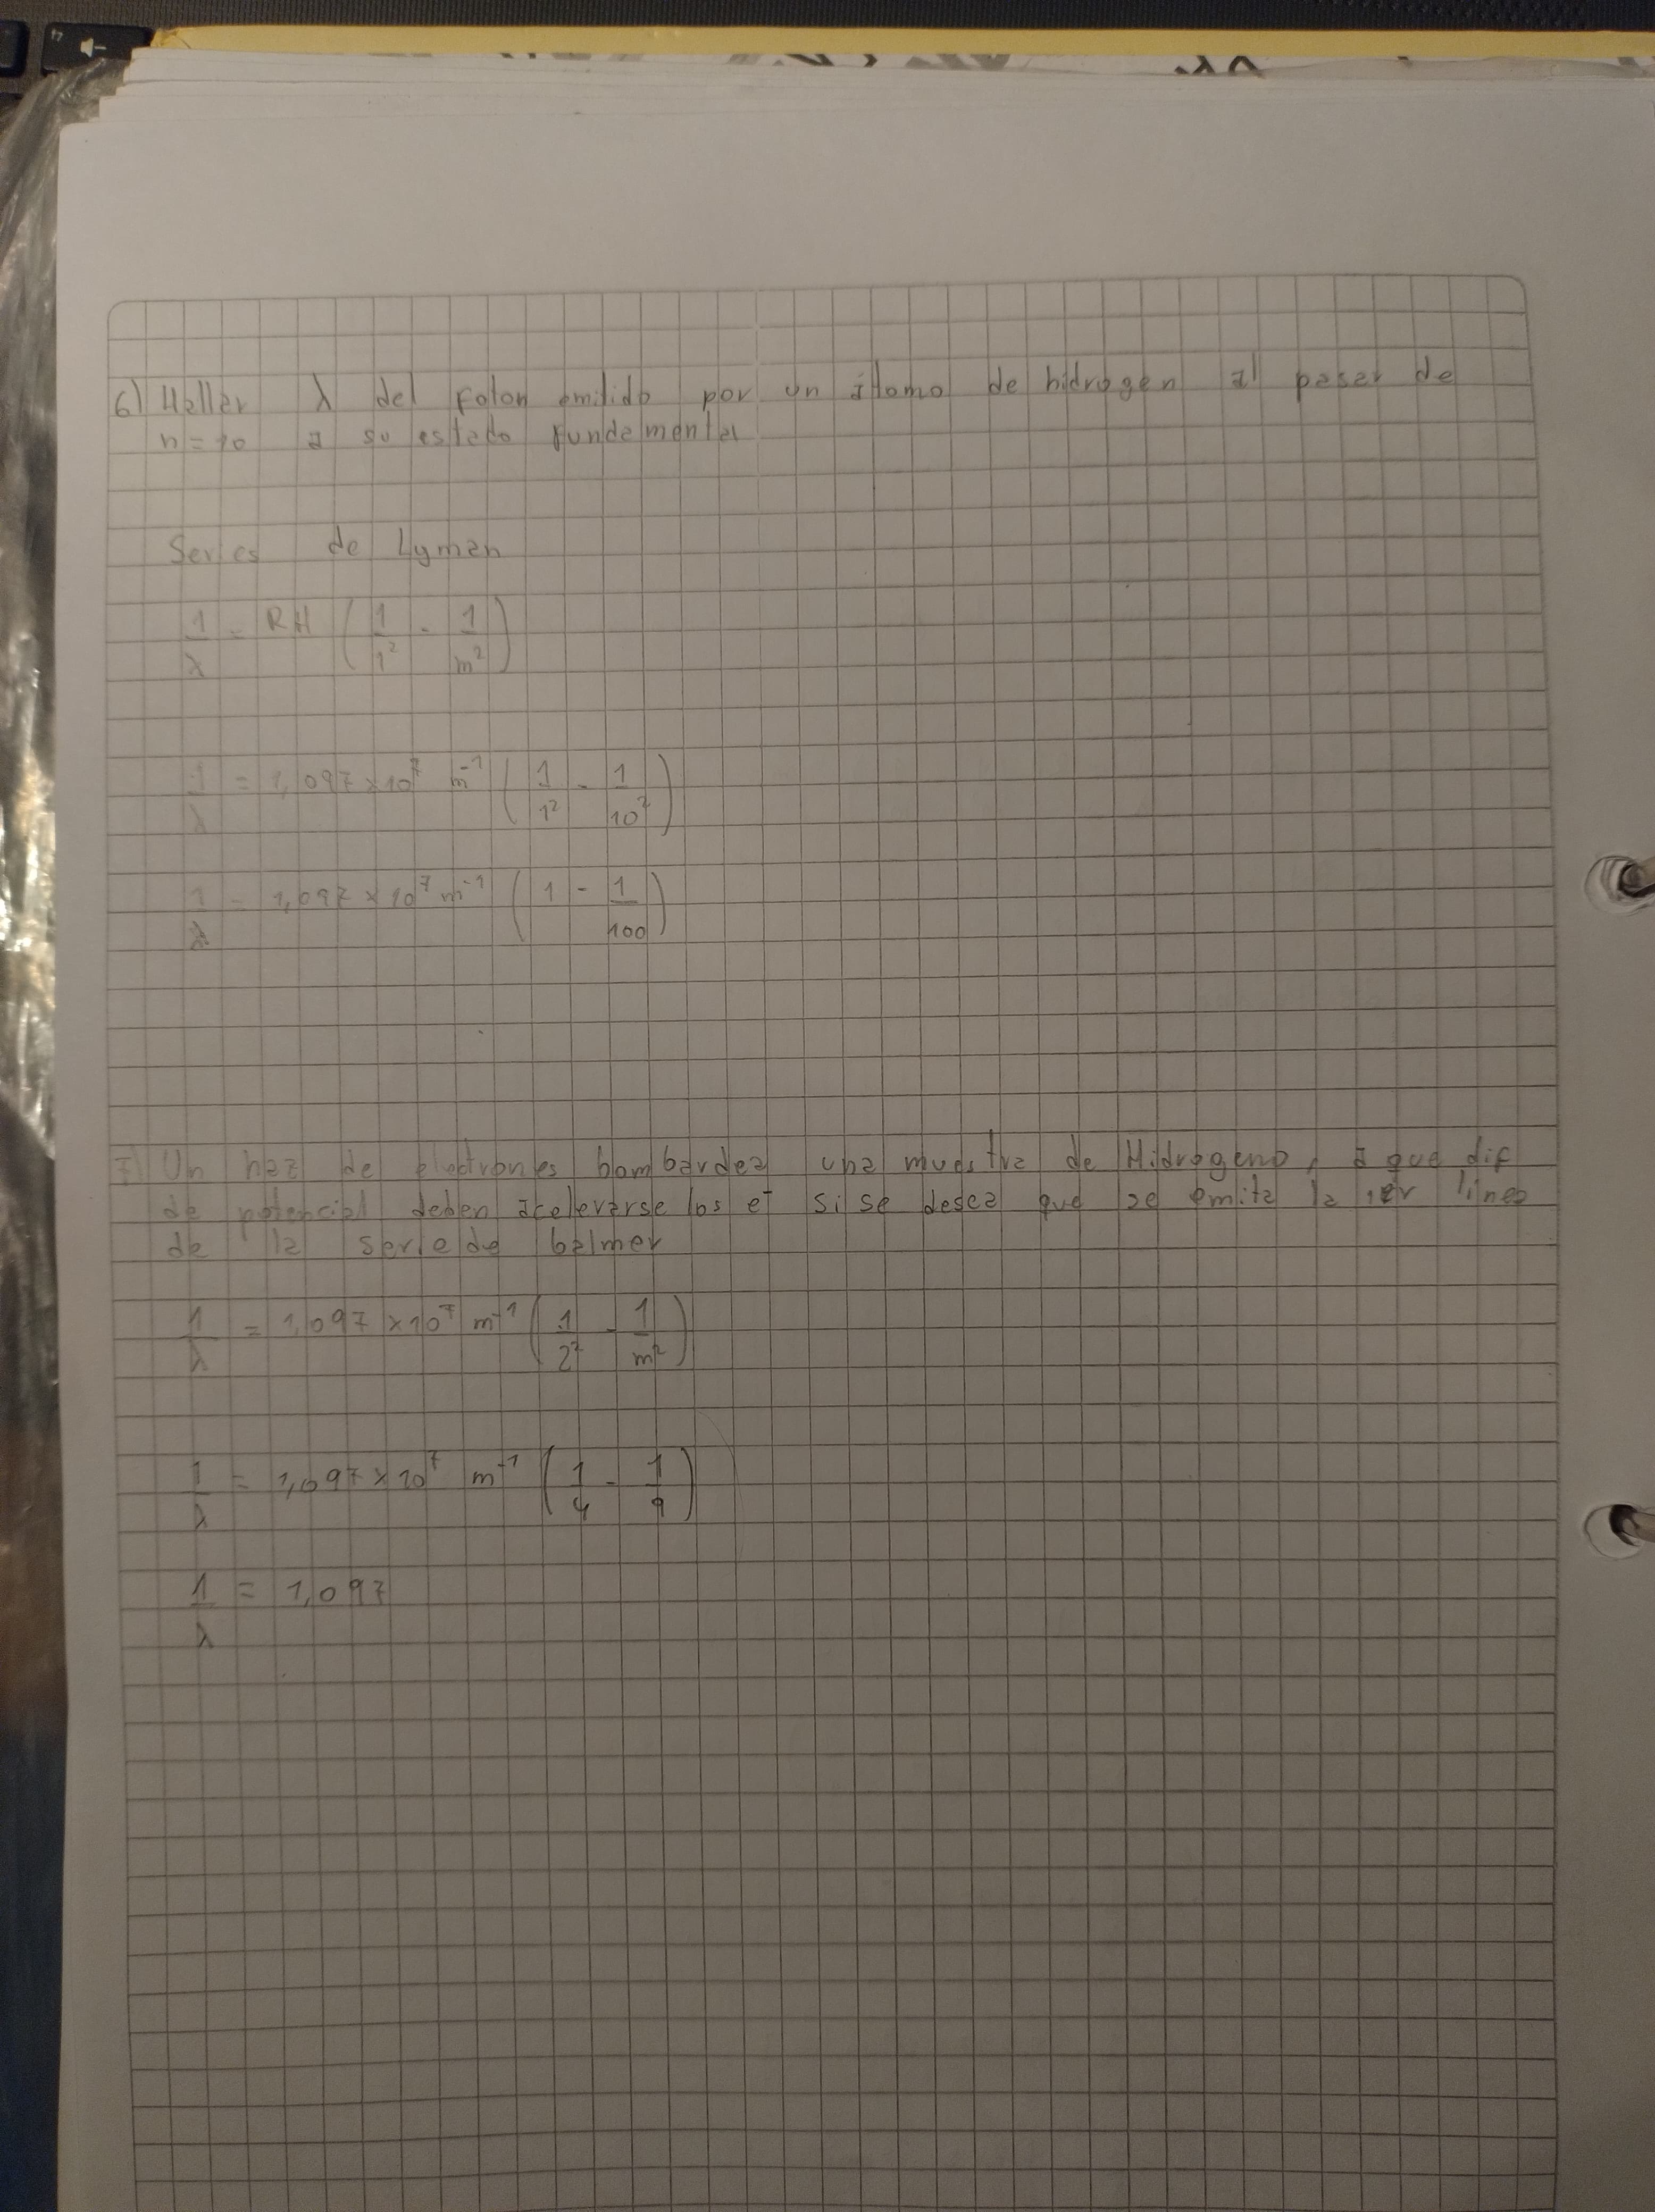 6) Hallar λ del foton emitido por un átomo de hidrogen al pasar de
n = 10 a su estado fundamental
Series de Lyman
1/λ = RH (1/1² - 1/m²)
1/λ = 1,097 x 10⁷ m⁻¹ (1/1² - 1/10²)
1/λ = 1,097 x 10⁷ m⁻¹ (1 - 1/100)
7) Un haz de electrones bombardea una muestra de Hidrogeno, a que dif
de potencial deben acelerarse los e⁻ si se desea que se emita la 1er linea
de la serie de balmer
1/λ = 1,097 x 10⁷ m⁻¹ (1/2² - 1/m²)
1/λ = 1,097 x 10⁷ m⁻¹ (1/4 - 1/9)
1/λ = 1,097